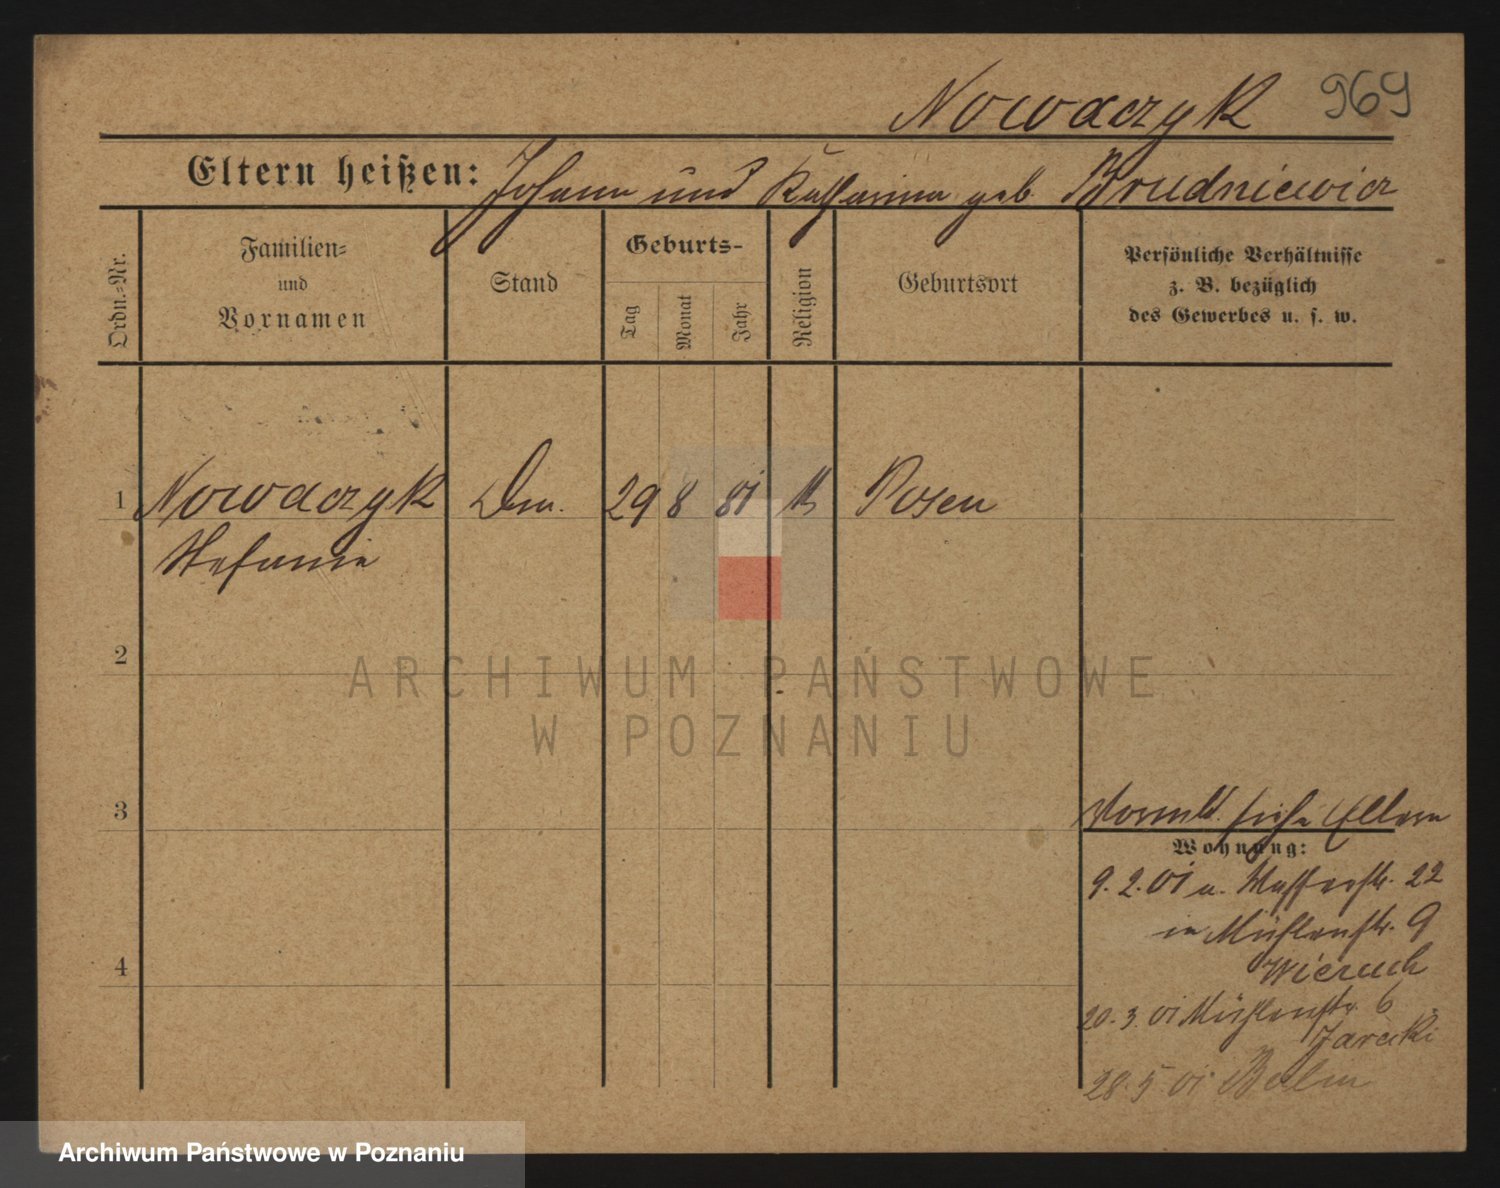 Nowaczyk 969
Eltern heißen: Johann und Katharina geb. Brudniewicz
Ordn.=Nr.
Familien=
und
Vornamen
Stand
Geburts-
Tag
Monat
Jahr
Religion
Geburtsort
Persönliche Verhältnisse
z. B. bezüglich
des Gewerbes u. s. w.
1 Nowaczyk 29 8 81 Posen
Stefanie
2
3
4
siehe Eltern
Wohnung:
9. 2. 01 a. Wasserstr. 22
in Mühlenstr. 9
Wieruch
20. 3. 01 Mühlenstr. 6
Jaracki
28. 5 01
ARCHIWUM PAŃSTWOWE
W POZNANIU
Archiwum Państwowe w Poznaniu